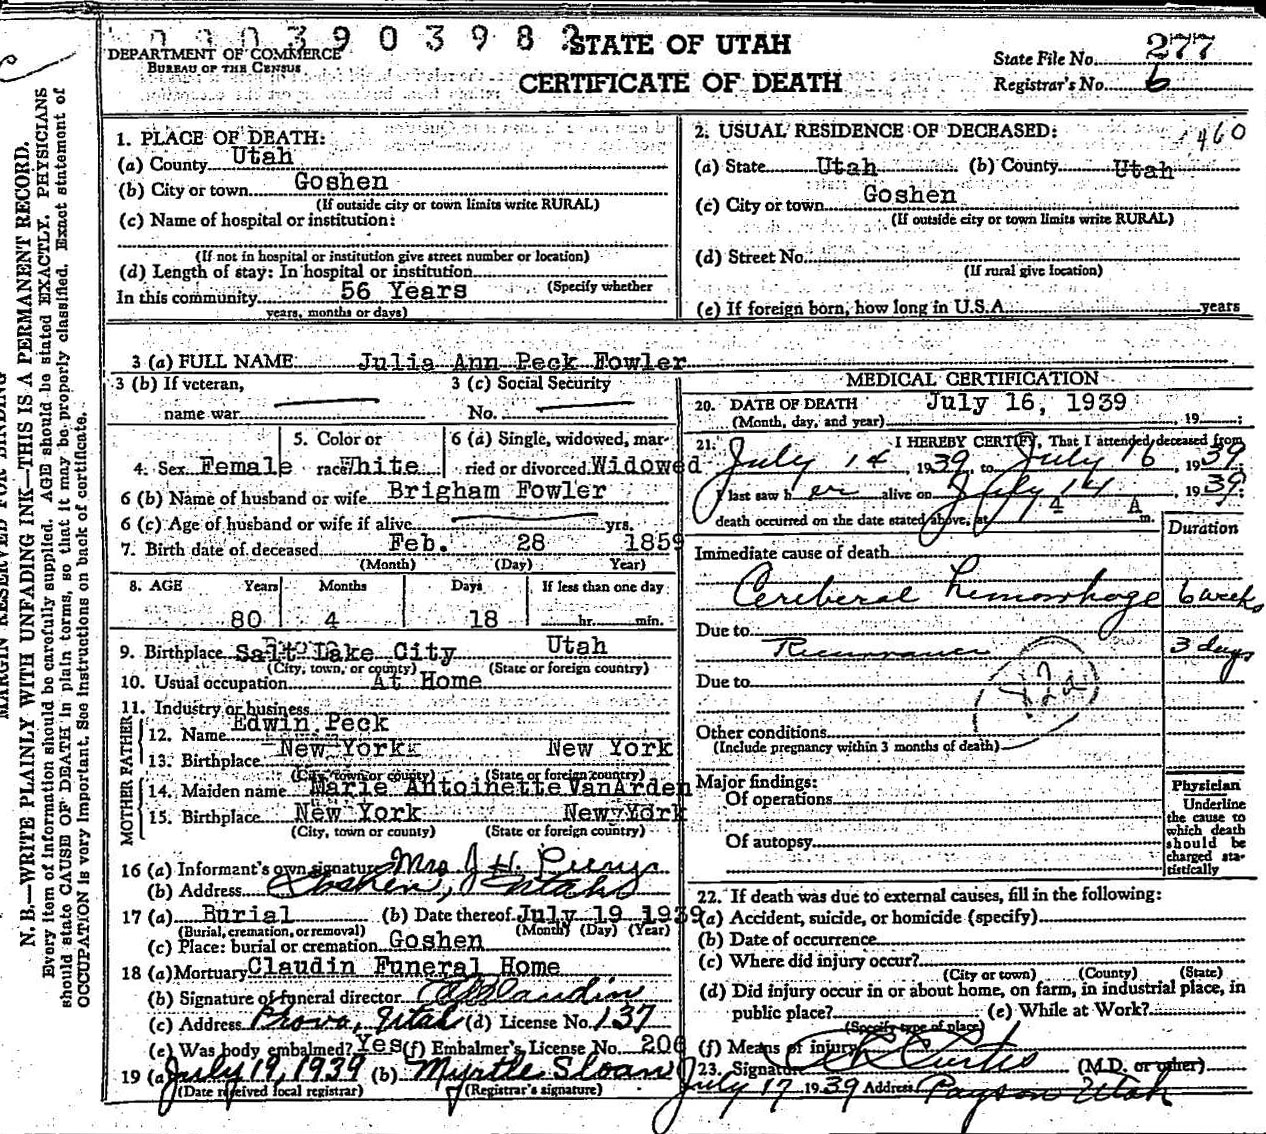 390398
DEPARTMENT OF COMMERCE
BUREAU OF THE CENSUS
STATE OF UTAH
CERTIFICATE OF DEATH
State File No. 277
Registrar's No. 6
MARGIN RESERVED FOR BINDING
N. B.—WRITE PLAINLY WITH UNFADING INK—THIS IS A PERMANENT RECORD.
Every item of information should be carefully supplied. AGE should be stated EXACTLY. PHYSICIANS
should state CAUSE OF DEATH in plain terms, so that it may be properly classified. Exact statement of
OCCUPATION is very important. See instructions on back of certificate.
1. PLACE OF DEATH:
(a) County Utah
(b) City or town Goshen
(If outside city or town limits write RURAL)
(c) Name of hospital or institution:
(If not in hospital or institution give street number or location)
(d) Length of stay: In hospital or institution
(Specify whether
In this community 56 Years
years, months or days)
2. USUAL RESIDENCE OF DECEASED: 1460
(a) State Utah (b) County Utah
(c) City or town Goshen
(If outside city or town limits write RURAL)
(d) Street No.
(If rural give location)
(e) If foreign born, how long in U.S.A. years
3 (a) FULL NAME Julia Ann Peck Fowler
3 (b) If veteran,
name war
3 (c) Social Security
No.
4. Sex Female
5. Color or
race White
6 (a) Single, widowed, mar-
ried or divorced Widowed
6 (b) Name of husband or wife Brigham Fowler
6 (c) Age of husband or wife if alive yrs.
7. Birth date of deceased Feb. 28 1859
(Month) (Day) Year)
8. AGE Years Months Days If less than one day
80 4 18 hr. min.
9. Birthplace Salt Lake City Utah
(City, town, or county) (State or foreign country)
10. Usual occupation At Home
11. Industry or business
FATHER
12. Name Edwin Peck
13. Birthplace New York New York
(City, town or county) (State or foreign country)
MOTHER
14. Maiden name Marie Antoinette VanArden
15. Birthplace New York New York
(City, town or county) (State or foreign country)
16 (a) Informant's own signature Mrs J. H.
(b) Address Goshen, Utah
17 (a) Burial (b) Date thereof July 19 1939
(Burial, cremation, or removal) (Month) (Day) (Year)
(c) Place: burial or cremation Goshen
18 (a) Mortuary Claudin Funeral Home
(b) Signature of funeral director Claudin
(c) Address Provo, Utah (d) License No. 137
(e) Was body embalmed? Yes (f) Embalmer's License No. 206
19 (a) July 19, 1939 (b) Myrtle Sloan
(Date received local registrar) (Registrar's signature)
MEDICAL CERTIFICATION
20. DATE OF DEATH July 16, 1939
(Month, day, and year) , 19 ;
21. I HEREBY CERTIFY, That I attended deceased from
July 14, 1939, to July 16, 1939
I last saw her alive on July 14, 1939;
death occurred on the date stated above, at 4 A m.
Duration
Immediate cause of death
Cereberal hemorrhage 6 weeks
Due to Recurrance 3 days
Due to
82a
Other conditions
(Include pregnancy within 3 months of death)
Major findings:
Of operations
Of autopsy
Physician
Underline
the cause to
which death
should be
charged sta-
tistically
22. If death was due to external causes, fill in the following:
(a) Accident, suicide, or homicide (specify)
(b) Date of occurrence
(c) Where did injury occur?
(City or town) (County) (State)
(d) Did injury occur in or about home, on farm, in industrial place, in
public place? (e) While at Work?
(Specify type of place)
(f) Means of injury
23. Signature Curtis (M.D. or other)
July 17 1939 Address Payson Utah